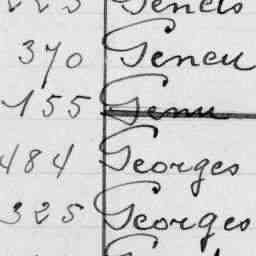 370 Geneu
155 Genu
484 Georges
325 Georges